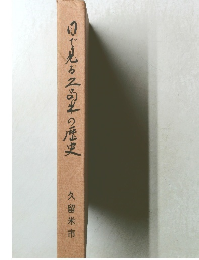 目で見る久留米の歴史
久留米市